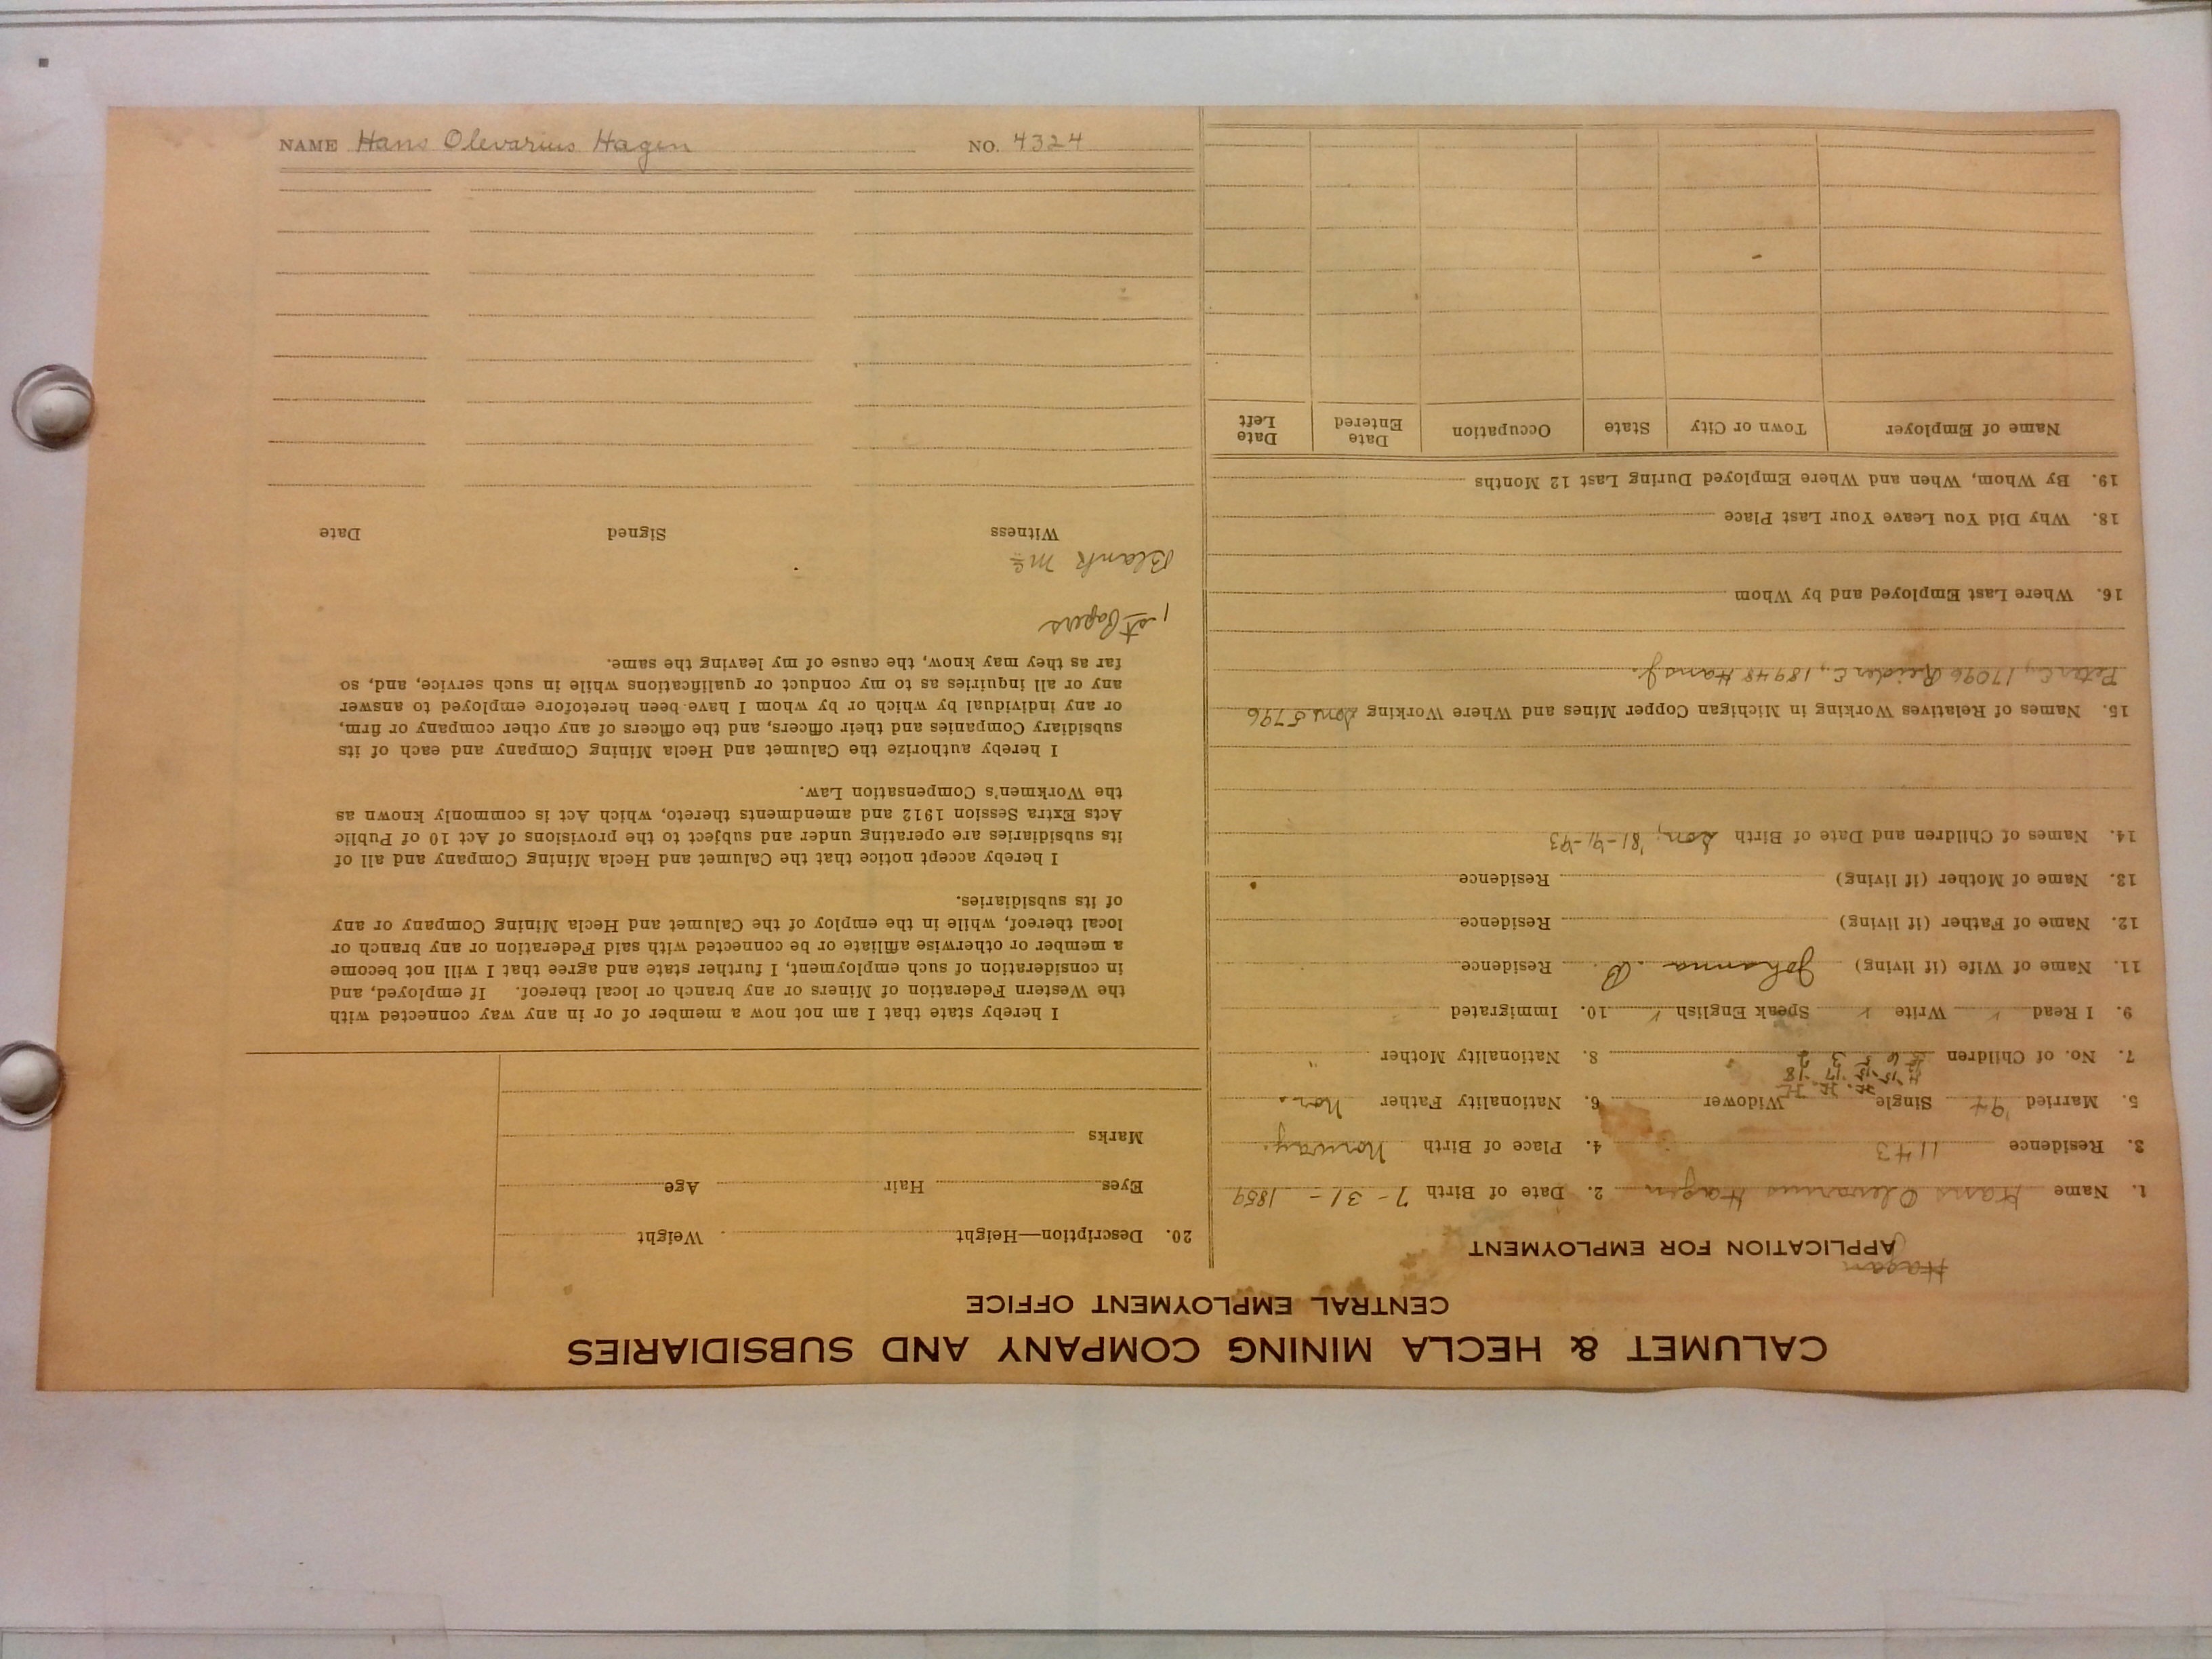 CALUMET & HECLA MINING COMPANY AND SUBSIDIARIES
CENTRAL EMPLOYMENT OFFICE
Hagan
APPLICATION FOR EMPLOYMENT
1. Name Hans Olevarius Hagen 2. Date of Birth 7-31-1859
3. Residence 1143 4. Place of Birth Norway.
5. Married '94 Single Widower 6. Nationality Father Nor.
H. H. H.
H 15 - 15 - 17 - 18
7. No. of Children 6 5 3 2 8. Nationality Mother "
9. I Read ✓ Write ✓ Speak English ✓ 10. Immigrated
11. Name of Wife (if living) Johanna B. Residence
12. Name of Father (if living) Residence
13. Name of Mother (if living) Residence
14. Names of Children and Date of Birth Son; '81-'91-'93
15. Names of Relatives Working in Michigan Copper Mines and Where Working Sons 5796
Peter E., 17096 Reider E., 18948 Hans J.
16. Where Last Employed and by Whom
18. Why Did You Leave Your Last Place
19. By Whom, When and Where Employed During Last 12 Months
Name of Employer Town or City State Occupation Date Entered Date Left
20. Description—Height Weight
Eyes Hair Age
Marks
I hereby state that I am not now a member of or in any way connected with
the Western Federation of Miners or any branch or local thereof. If employed, and
in consideration of such employment, I further state and agree that I will not become
a member or otherwise affiliate or be connected with said Federation or any branch or
local thereof, while in the employ of the Calumet and Hecla Mining Company or any
of its subsidiaries.
I hereby accept notice that the Calumet and Hecla Mining Company and all of
its subsidiaries are operating under and subject to the provisions of Act 10 of Public
Acts Extra Session 1912 and amendments thereto, which Act is commonly known as
the Workmen's Compensation Law.
I hereby authorize the Calumet and Hecla Mining Company and each of its
subsidiary Companies and their officers, and the officers of any other company or firm,
or any individual by which or by whom I have been heretofore employed to answer
any or all inquiries as to my conduct or qualifications while in such service, and, so
far as they may know, the cause of my leaving the same.
1st Papers
Blank Mc
Witness Signed Date
NAME Hans Olevarius Hagen NO. 4324